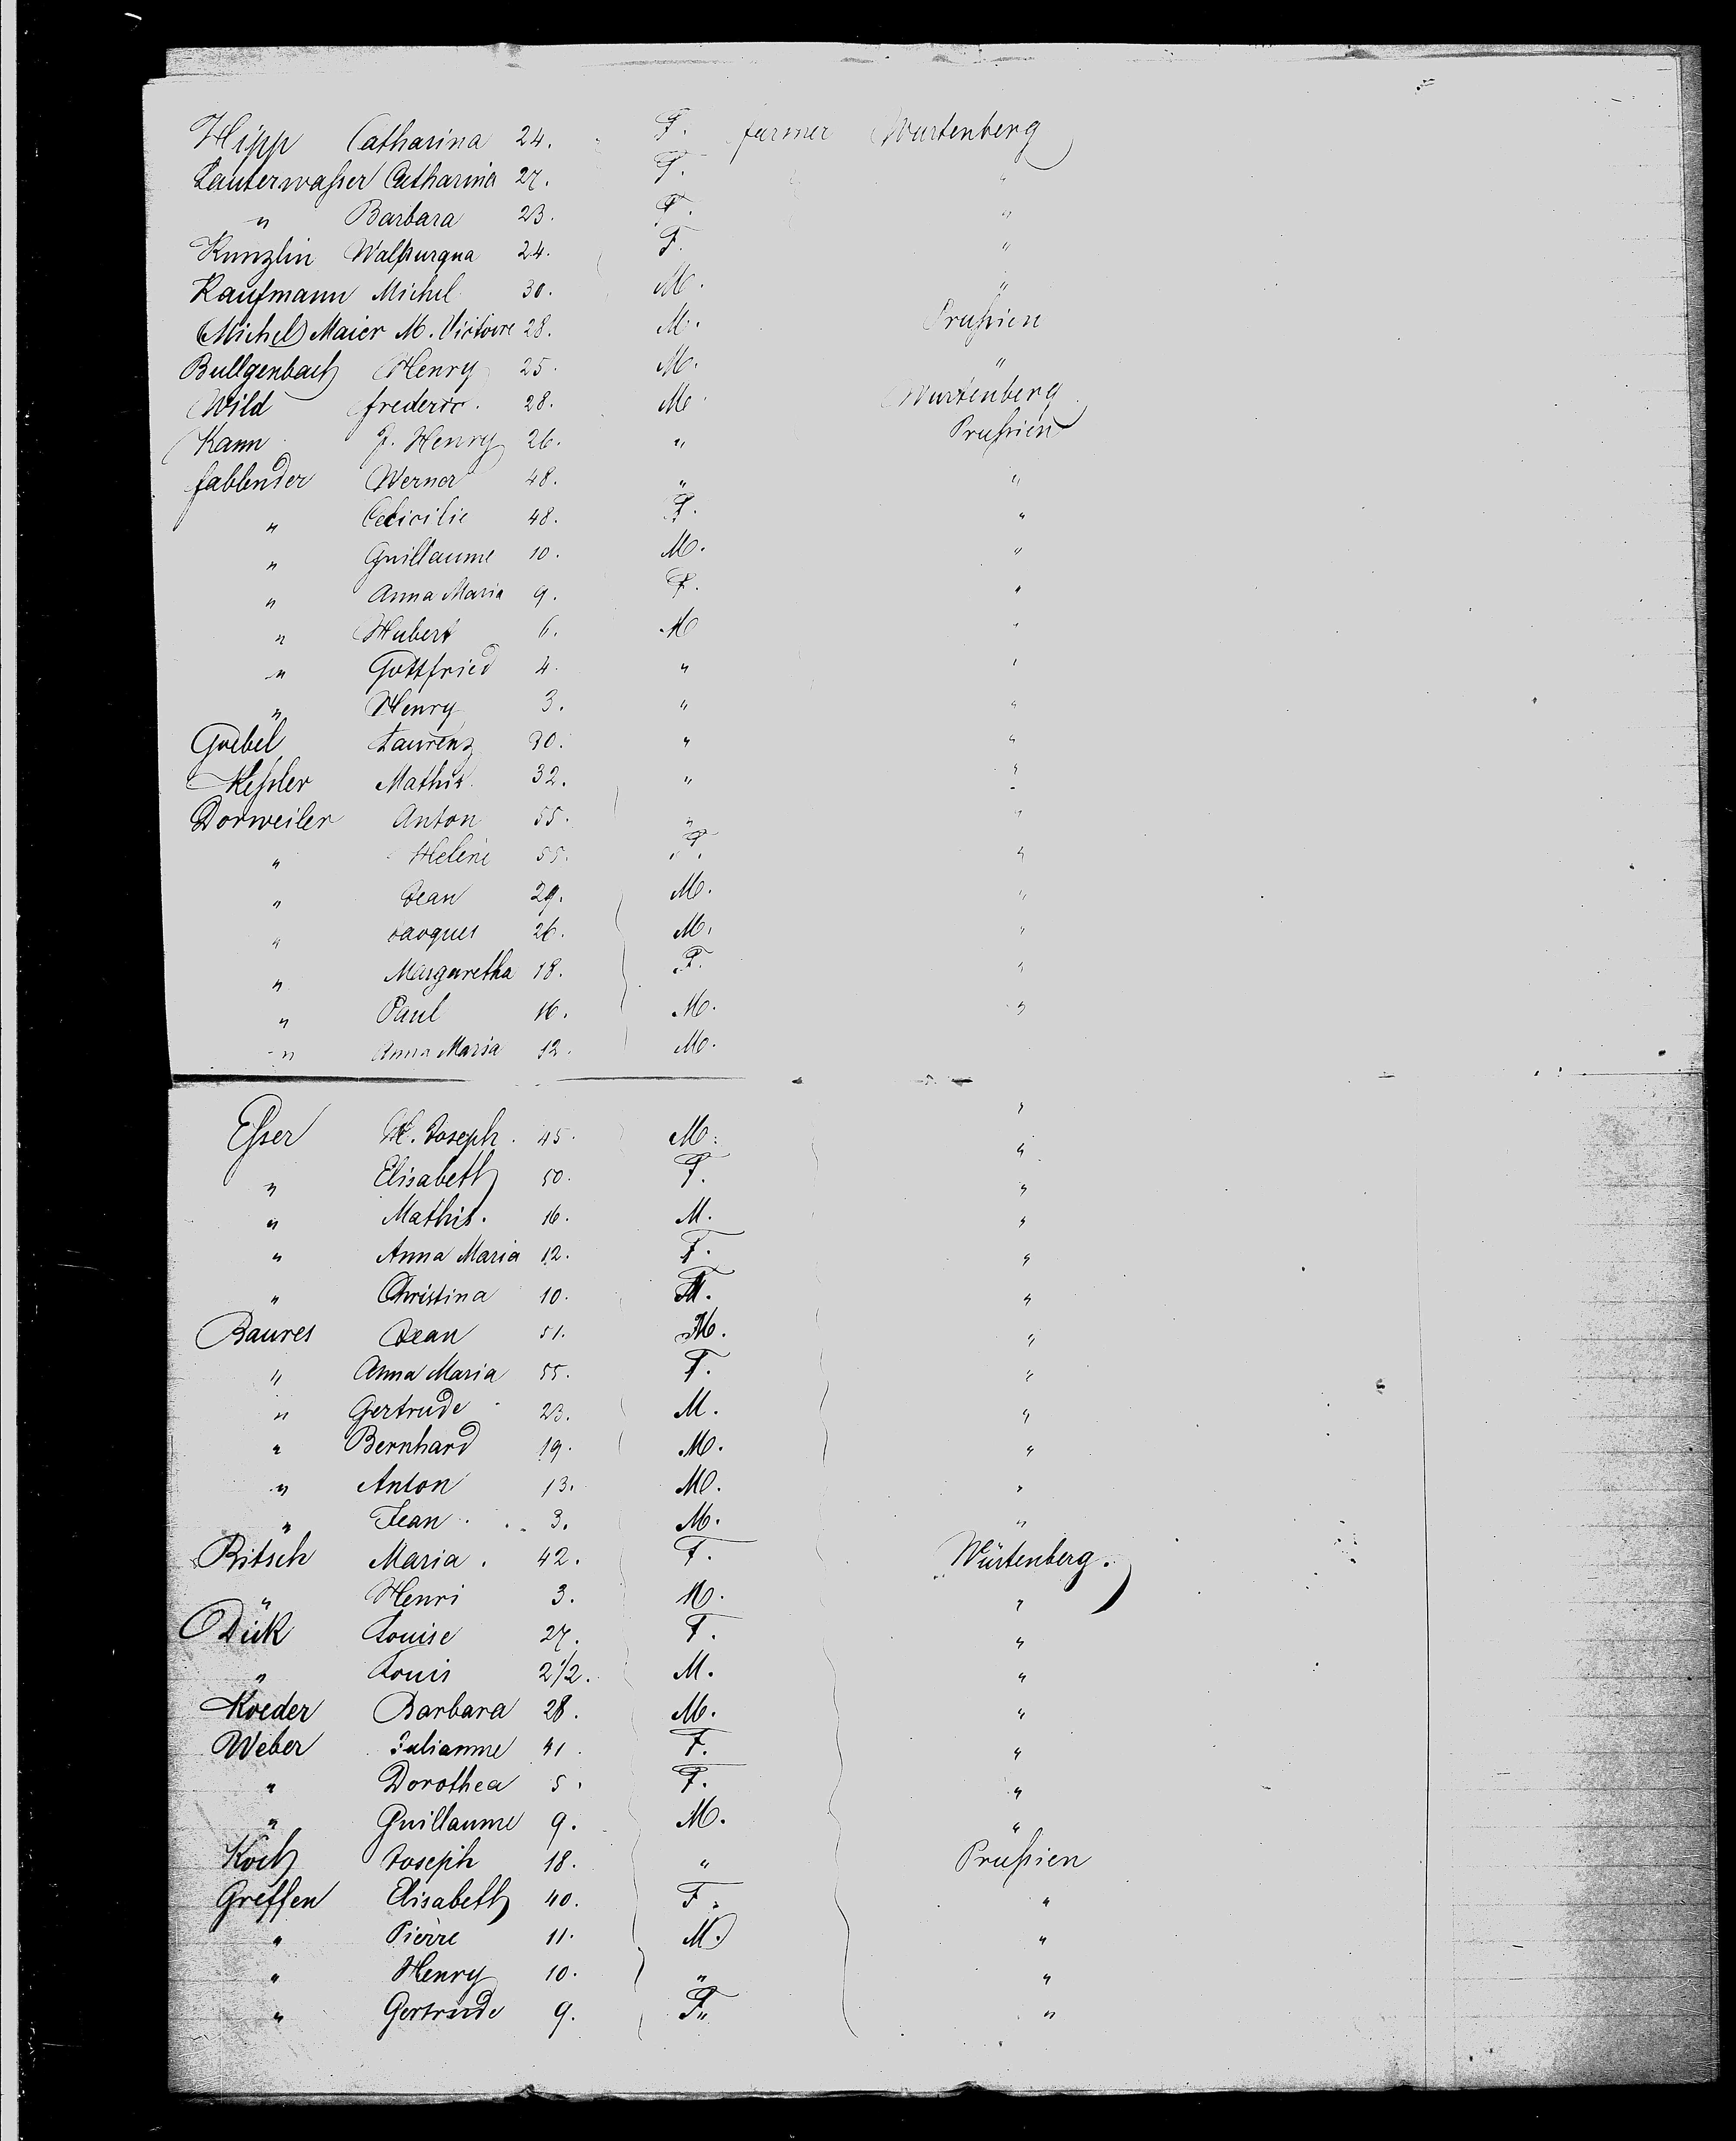 Hipp Catharina 24. F. farmer Wurtenberg
Lauterwaßer Catharina 27. F. "
" Barbara 23. F. "
Kunzlin Walpurga 24. F. "
Kaufmann Michel 30. M. "
(Michel) Maier M. Victoire 28. M. Prußien
Bullgenbach Henry 25. M. "
Wild frederic. 28. M. Wurtenberg
Kann J. Henry 26. " Prußien
fabbender Werner 48. " "
" Cecilie 48. F. "
" Guillaume 10. M. "
" Anna Maria 9. F. "
" Hubert 6. M "
" Gottfried 4. " "
" Henry 3. " "
Goebel Laurenz 30. " "
Keßler Mathis. 32. " "
Dorweiler Anton 55. " "
" Helene 55. F. "
" Jean 29. M. "
" Jacques 26. M. "
" Margaretha 18. F. "
" Paul 16. M. "
" Anna Maria 12. M.
"
Eßer Joseph. 45. M. "
" Elisabeth 50. F. "
" Mathis. 16. M. "
" Anna Maria 12. F. "
" Christina 10. "
Baures Jean 51. M. "
" Anna Maria 55. F. "
" Gertrude 23. M. "
" Bernhard 19. M. "
" Anton 13. M. "
" Jean 3. M. "
Ritsch Maria. 42. F. Würtenberg.
" Henri 3. M. "
Dick Louise 27. F. "
" Louis 2 1/2. M. "
Koeder Barbara 28. M. "
Weber Julianne 41. F. "
" Dorothea 5. F. "
" Guillaume 9. M. "
Koch Joseph 18. " Prußien
Greffen Elisabeth 40. F. "
" Pierre 11. M. "
" Henry 10. " "
" Gertrude 9. F. "